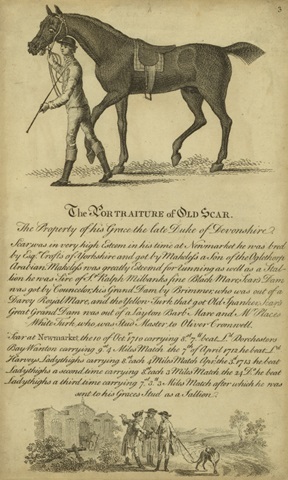 3
The PORTRAITURE of OLD SCAR.
The Property of his Grace the late Duke of Devonshire.
Scar was in very high Esteem in his time at Newmarket he was bred
by Esq. Crofts of Yorkshire and got by Makeless a Son of the Oglethorp
Arabian. Makeless was greatly Esteemd for running as well as a Stal-
lion he was Sire of Sr. Ralph Milbanks fine Black Mare. Scar's Dam
was got by Councelor, his Grand Dam by Brimmer, who was out of a
Darcy Royal Mare, and the Yellow Turk that got Old Spanker. Scar's
Great Grand Dam was out of a Layton Barb Mare and Mr. Places
White Turk, who was Stud Master to Oliver Cromwell.
Scar at Newmarket there of Octr. 1710 carrying 8st. 7lb. beat Ld. Dorchesters
Bay Wanton carrying 9st. 4 Miles Match the 7th of April 1712 he beat Ld.
Harveys Ladythighs carrying 8st. each 4 Miles Match Apr. the 3d. 1713 he beat
Ladythighs a second time carrying 8st. each 3 Miles Match the 24 Do. he beat
Ladythighs a third time carrying 7st. 3lb. 3 Miles Match after which he was
sent to his Graces Stud as a Stallion.